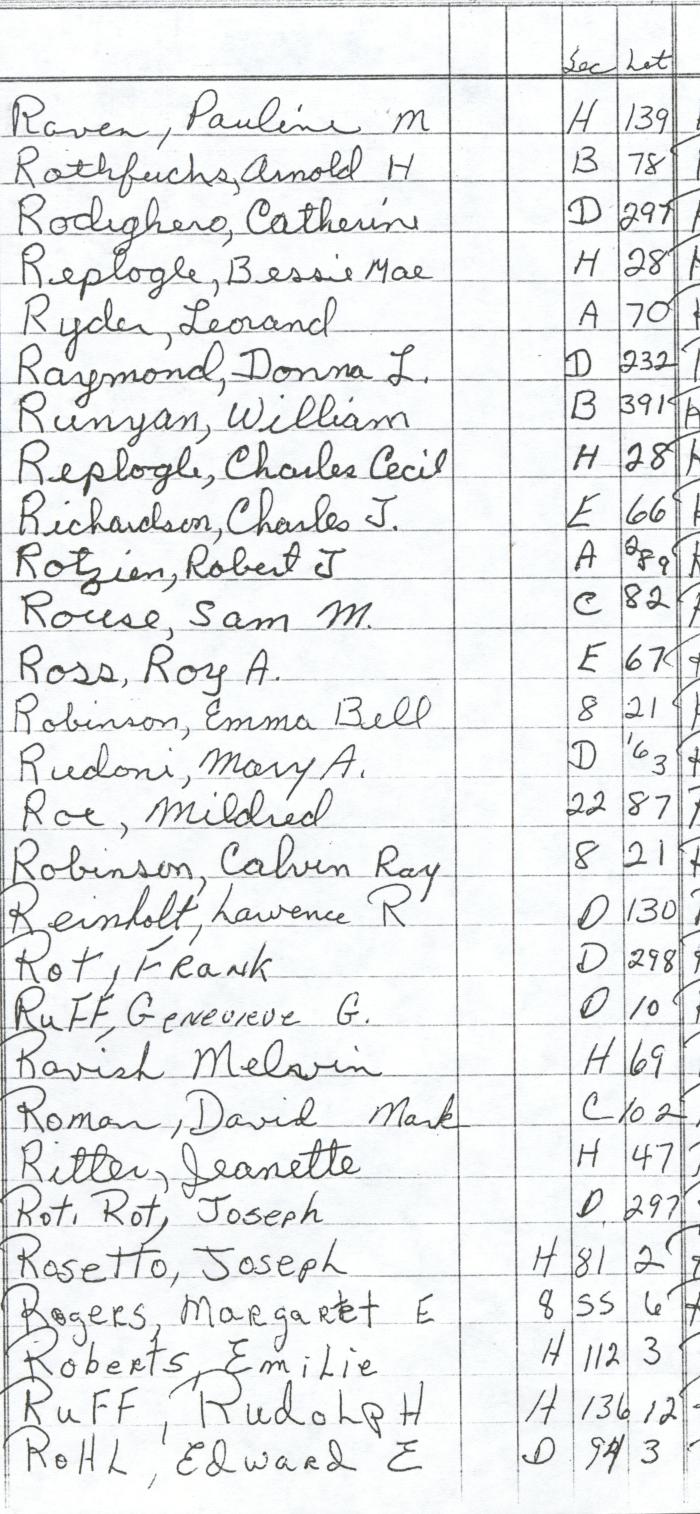 Sec Lot
Raven, Pauline M H 139
Rothfuchs, Arnold H B 78
Rodighero, Catherine D 297
Replogle, Bessie Mae H 28
Ryder, Leorand A 70
Raymond, Donna L. D 232
Runyan, William B 391
Replogle, Charles Cecil H 28
Richardson, Charles J. E 66
Rotzien, Robert J A 289
Rouse, Sam M. C 82
Ross, Roy A. E 67
Robinson, Emma Bell 8 21
Rudoni, Mary A. D 163
Roe, Mildred 22 87
Robinson, Calvin Ray 8 21
Reinholt, Lawence R D 130
Rot, Frank D 298
RuFF, Genevieve G. D 10
Ravish Melvin H 69
Roman, David Mark C 102
Ritter, Jeanette H 47
Rot. Rot, Joseph D 297
Rosetto, Joseph H 81 2
Rogers, Margaret E 8 SS 6
Roberts, Emilie H 112 3
RuFF, RudoLpH H 136 12
RoHL, Edward E D 94 3